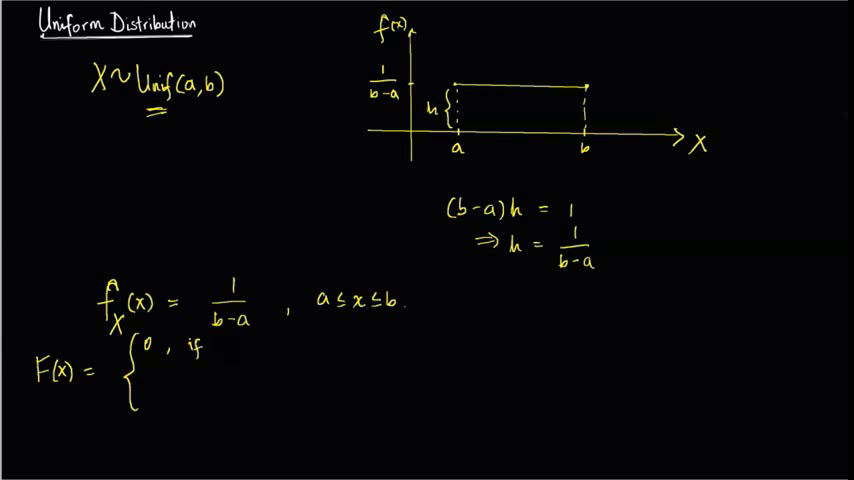 Uniform Distribution
X ~ Unif(a,b)
f(x)
1/(b-a)
h {
a
b
X
(b-a)h = 1
⇒ h = 1/(b-a)
f_X(x) = 1/(b-a) , a ≤ x ≤ b.
F(x) = { 0 , if